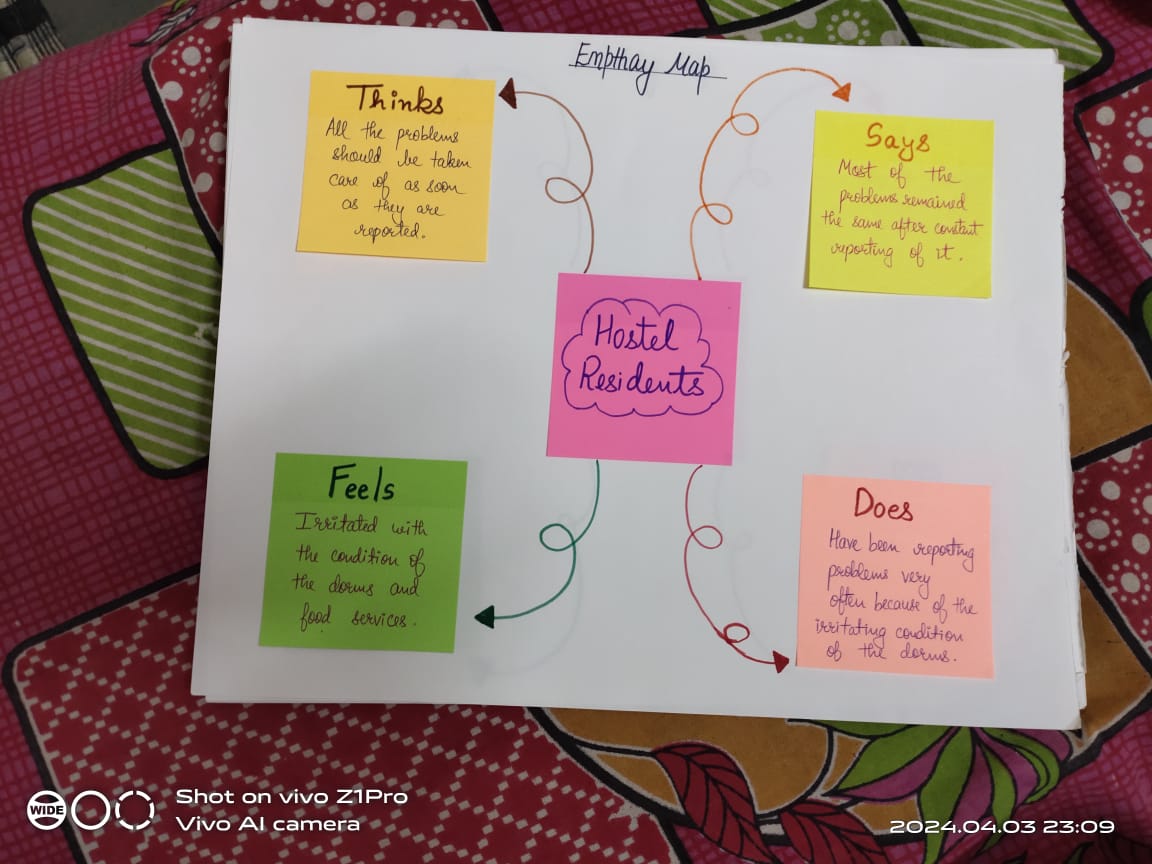 Empthay Map
Thinks
All the problems
should be taken
care of as soon
as they are
reported.
Says
Most of the
problems remained
the same after constant
reporting of it.
Hostel
Residents
Feels
Irritated with
the condition of
the dorms and
food services.
Does
Have been reporting
problems very
often because of the
irritating condition
of the dorms.
WIDE
Shot on vivo Z1Pro
Vivo AI camera
2024.04.03 23:09